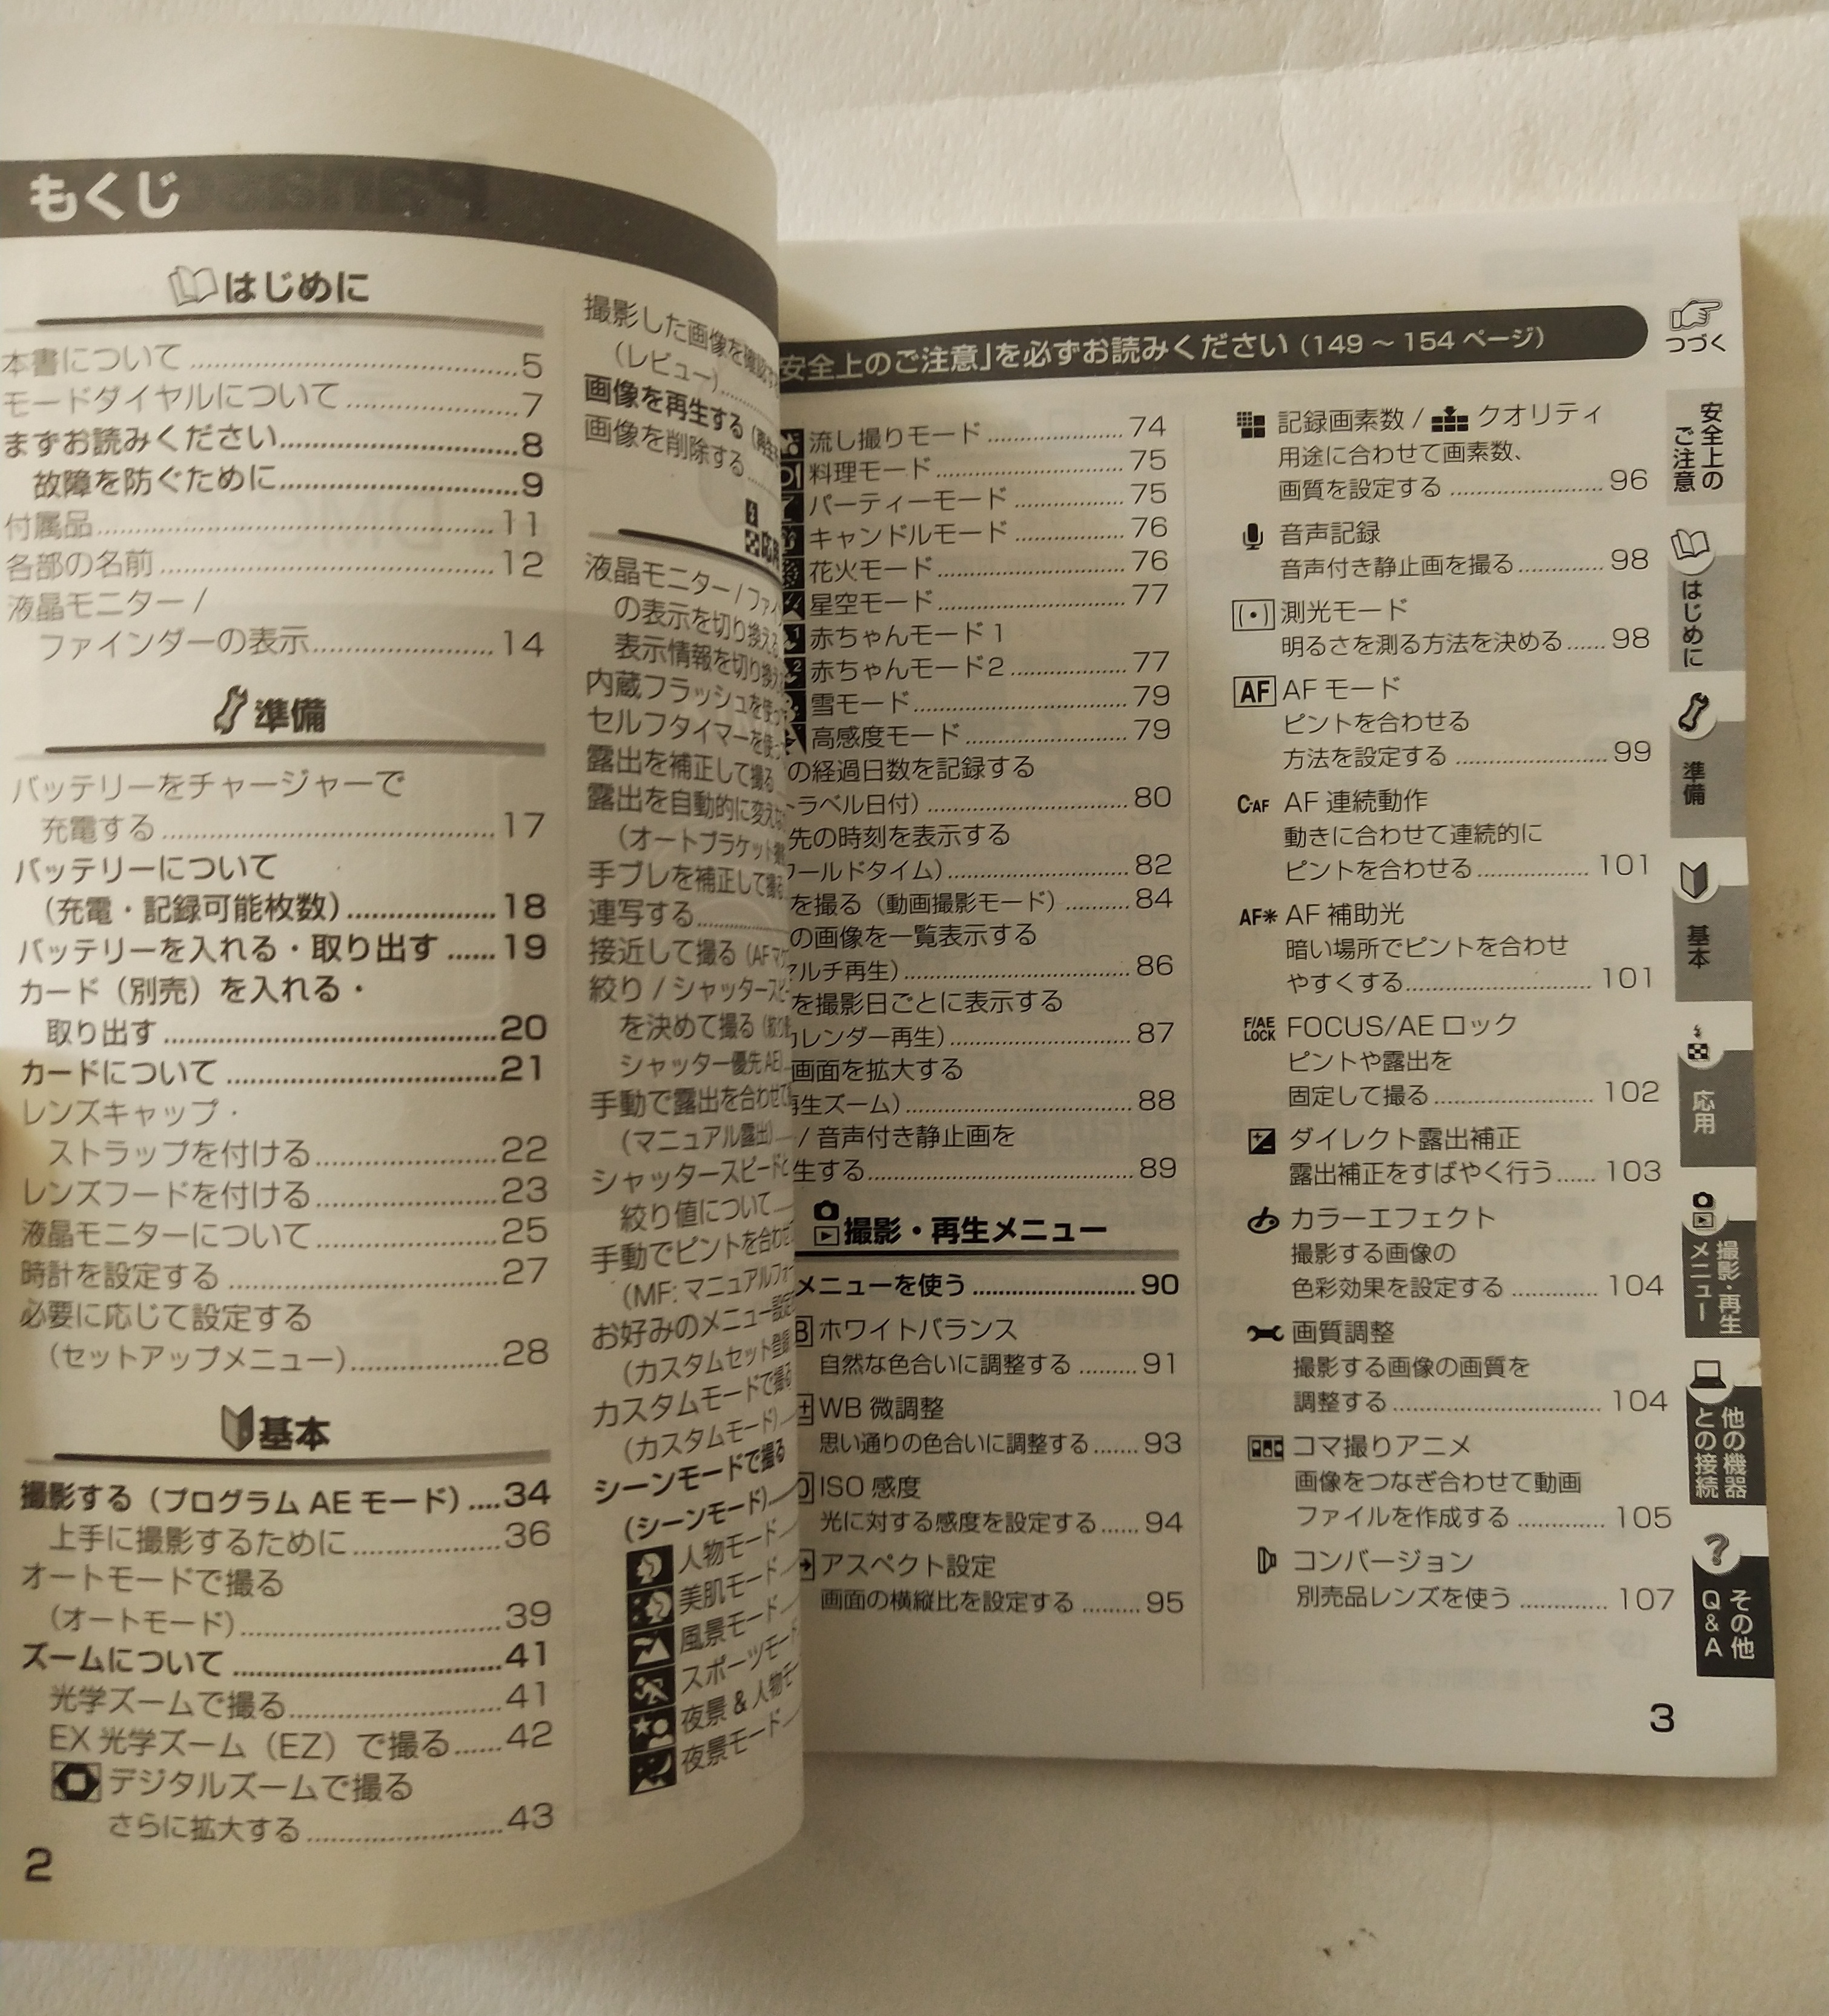 もくじ
はじめに
本書について 5
モードダイヤルについて 7
まずお読みください 8
故障を防ぐために 9
付属品 11
各部の名前 12
液晶モニター /
ファインダーの表示 14
準備
バッテリーをチャージャーで
充電する 17
バッテリーについて
（充電・記録可能枚数） 18
バッテリーを入れる・取り出す 19
カード（別売）を入れる・
取り出す 20
カードについて 21
レンズキャップ・
ストラップを付ける 22
レンズフードを付ける 23
液晶モニターについて 25
時計を設定する 27
必要に応じて設定する
（セットアップメニュー） 28
基本
撮影する（プログラム AE モード） 34
上手に撮影するために 36
オートモードで撮る
（オートモード） 39
ズームについて 41
光学ズームで撮る 41
EX 光学ズーム（EZ）で撮る 42
デジタルズームで撮る
さらに拡大する 43
2
撮影した画像を
（レビュー）
画像を再生する
画像を削除する
液晶モニター /
の表示を切り換える
表示情報を切り換え
内蔵フラッシュを使っ
セルフタイマーを使っ
露出を補正して撮る
露出を自動的に変え
（オートブラケット
手ブレを補正して撮る
連写する
接近して撮る（AF マ
絞り / シャッタースピ
を決めて撮る
シャッター優先 AE）
手動で露出を合わせて
（マニュアル露出）
シャッタースピードと
絞り値について
手動でピントを合わせ
（MF: マニュアルフォー
お好みのメニュー設定
（カスタムセット登録
カスタムモードで撮る
（カスタムモード）
シーンモードで撮る
（シーンモード）
人物モード
美肌モード
風景モード
スポーツモード
夜景 & 人物モ
夜景モード
安全上のご注意」を必ずお読みください（149 ～ 154 ページ）
流し撮りモード 74
料理モード 75
パーティーモード 75
キャンドルモード 76
花火モード 76
星空モード 77
赤ちゃんモード 1
赤ちゃんモード 2 77
雪モード 79
高感度モード 79
の経過日数を記録する
トラベル日付） 80
先の時刻を表示する
ワールドタイム） 82
を撮る（動画撮影モード） 84
の画像を一覧表示する
マルチ再生） 86
を撮影日ごとに表示する
カレンダー再生） 87
画面を拡大する
再生ズーム） 88
/ 音声付き静止画を
生する 89
撮影・再生メニュー
メニューを使う 90
ホワイトバランス
自然な色合いに調整する 91
WB 微調整
思い通りの色合いに調整する 93
ISO 感度
光に対する感度を設定する 94
アスペクト設定
画面の横縦比を設定する 95
記録画素数 / クオリティ
用途に合わせて画素数、
画質を設定する 96
音声記録
音声付き静止画を撮る 98
測光モード
明るさを測る方法を決める 98
AF AF モード
ピントを合わせる
方法を設定する 99
C-AF AF 連続動作
動きに合わせて連続的に
ピントを合わせる 101
AF* AF 補助光
暗い場所でピントを合わせ
やすくする 101
F/AE LOCK FOCUS/AE ロック
ピントや露出を
固定して撮る 102
ダイレクト露出補正
露出補正をすばやく行う 103
カラーエフェクト
撮影する画像の
色彩効果を設定する 104
画質調整
撮影する画像の画質を
調整する 104
コマ撮りアニメ
画像をつなぎ合わせて動画
ファイルを作成する 105
コンバージョン
別売品レンズを使う 107
つづく
安全上の
ご注意
はじめに
準備
基本
応用
撮影・再生
メニュー
他の機器
との接続
その他
Q&A
3